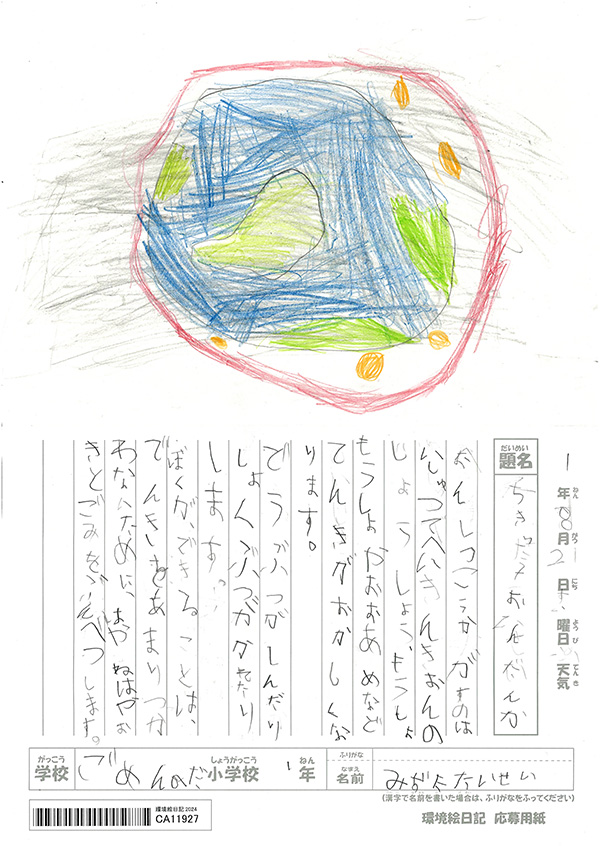 1年8月2日 曜日 天気
ねん がつ にち ようび てんき
だいめい
題名
ちきゅうおんだんか
おんしつこうかがすのは
いしゅつてへいきんきおんの
じょうしょうもうしょ
もうしょやおおあめなど
てんきがおかしくな
ります。
どうぶつがしんだり
しょくぶつがかれたり
します。
ぼくが、できることは、
でんきをあまりつか
わないために、はやねはやお
きとごみをぶんべつします。
がっこう しょうがっこう ねん ふりがな
学校 ごめんのだ小学校 1年 なまえ 名前 たいせい
(漢字で名前を書いた場合は、ふりがなをふってください)
環境絵日記 2024
CA11927
環境絵日記 応募用紙